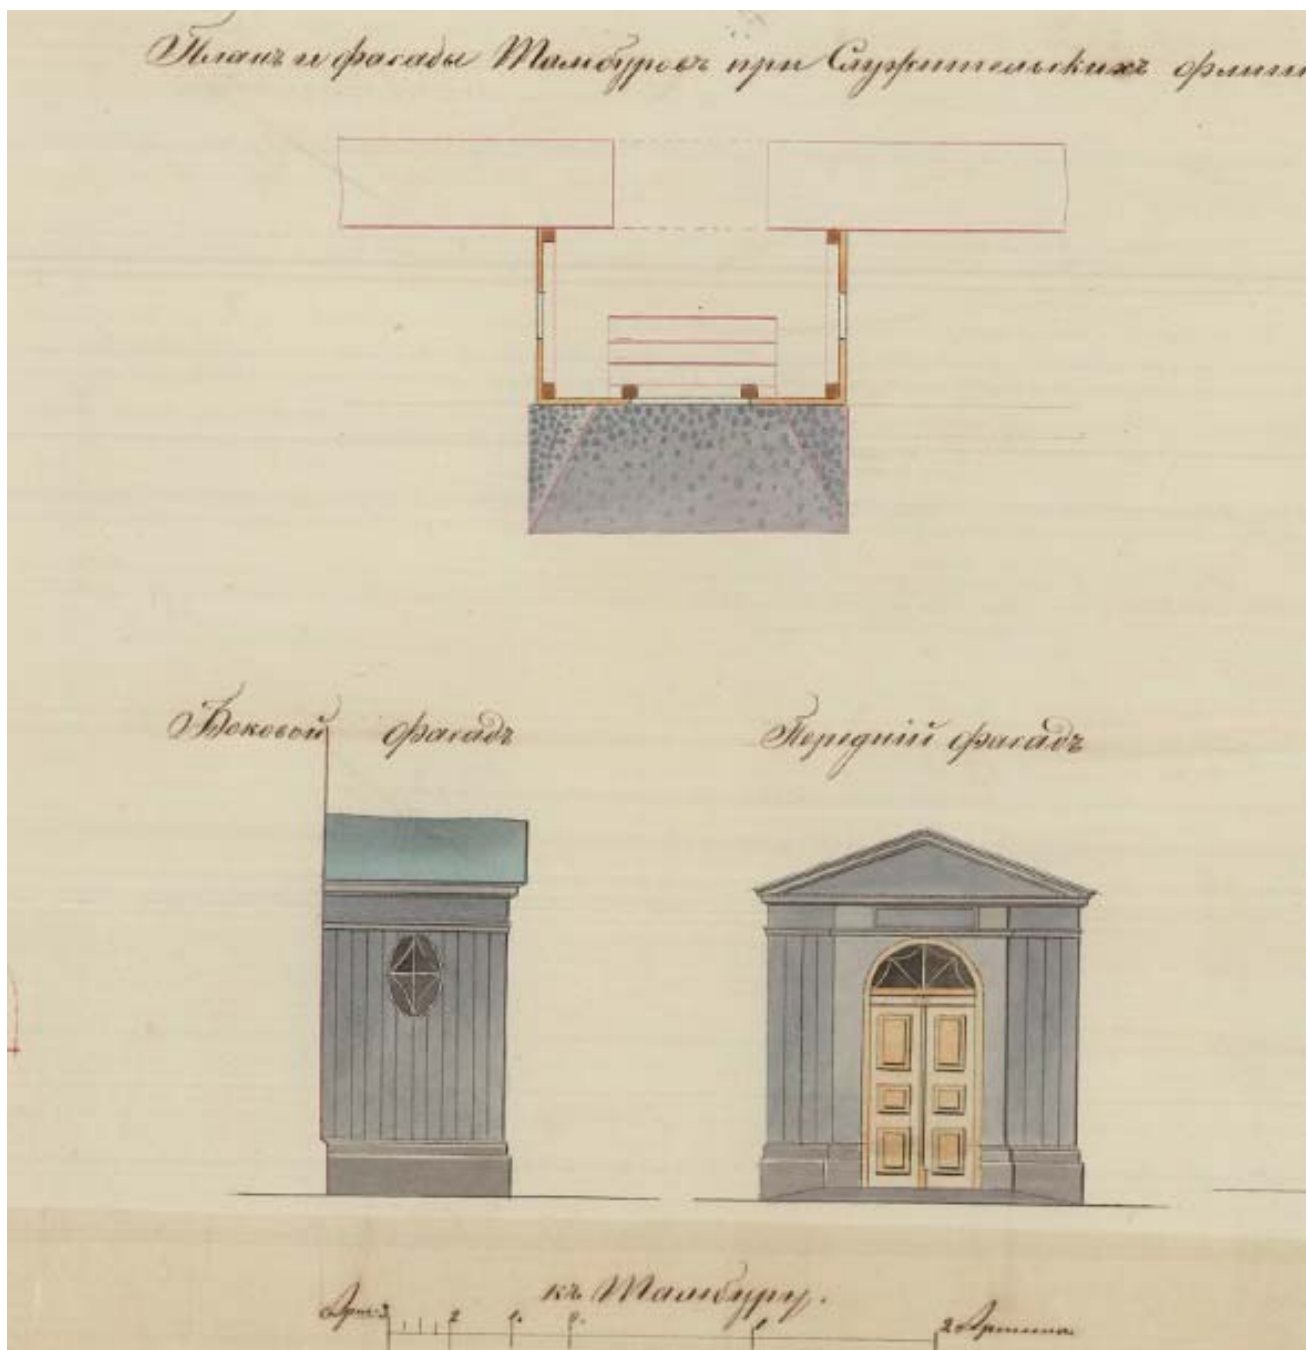 Планъ и фасады Тамбуровъ при Служительскихъ
Боковой фасадъ
Передній фасадъ
къ Тамбуру.
Арш. 3 2 1. 0. 1 2 Аршина